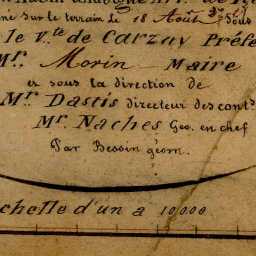 né sur le terrain le 18 Août Sous
le V.te de Carzay Préfe
Mr. Morin Maire
et sous la direction de
Mr. Dastis directeur des cont.
Mr. Naches Geo. en chef
Par Bessin géom.
chelle d'un a 10000